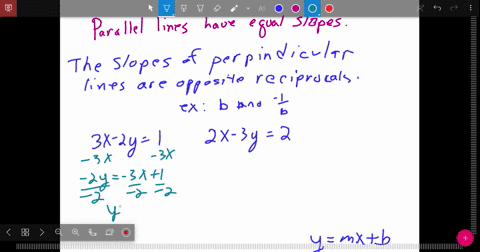 Parallel lines have equal slopes.
The slopes of perpindicular
lines are opposite reciprocals.
ex: b and -1/b
3x-2y=1 2x-3y=2
-3x -3x
-2y=-3x+1
-2 -2 -2
y
y=mx+b